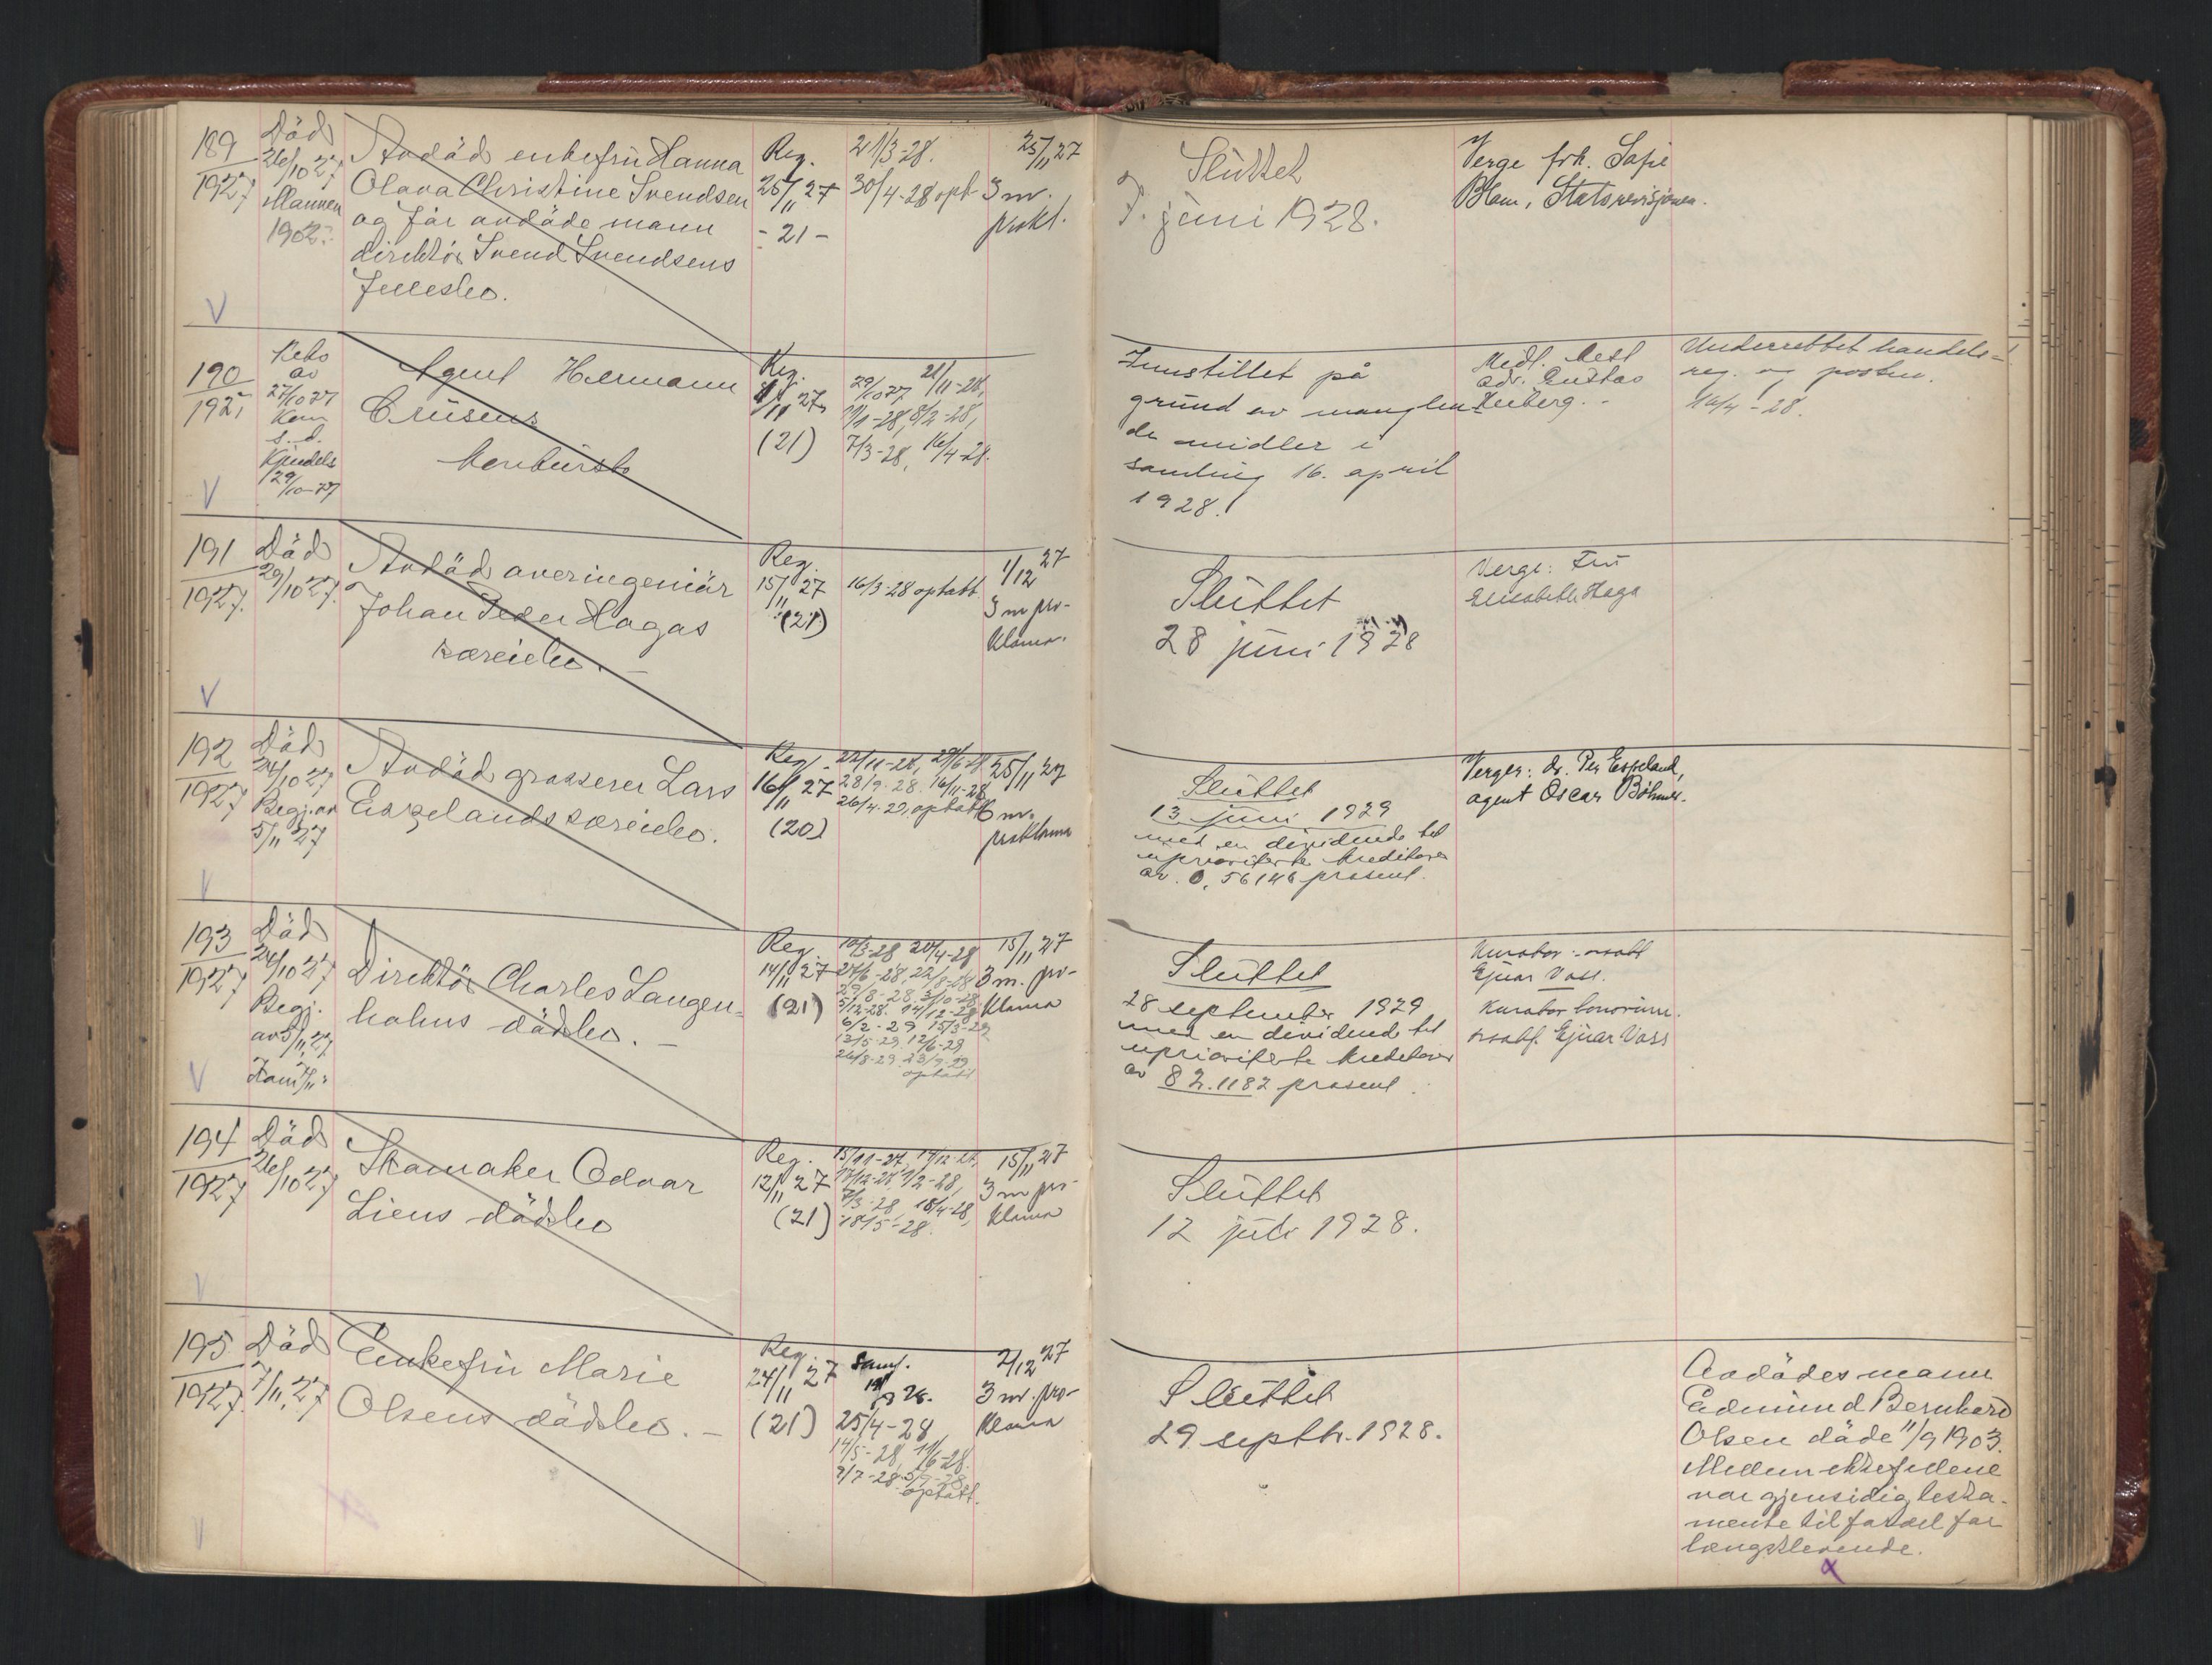 189
1927
Död
26/10 27
Mannen
1902
Avdöd enkefru Hanna
Olava Christine Svendsen
og før avdöde mann
direktör Svend Svendsens
fellesbo.
Reg.
25/11 27
- 21 -
21/3-28.
30/4-28 opt
25/11 27
3 m.
prokl.
Sluttet
7. juni 1928.
Verge frk. Sofie
Blom, Statsrevisjonen.
V
190
1927
Kebs
av
27/10 27
Kom
s.d.
Kjendels
29/10-27
Agent Hermann
Crusens
konkursbo
Reg.
1/11 27
(21)
29/10 27, 21/11-27,
11/1-28, 8/2-28,
7/3-28, 16/4-28.
Innstillet på
grund av manglen-
de midler i
samling 16. april
1928.
Midl. best
adv. Gustav
Heiberg.
Underrettet handels-
reg. og posten.
16/4-28.
V
191
1927.
Död
29/10 27.
Avdöd overingeniör
Johan Peder Hagas
særeiebo. -
Reg.
15/11 27
(21)
16/3-28 optatt
1/12 27
3 m pro-
klama.
Sluttet
28 juni 1928
Verge: Fru
Elisabeth Haga
V
192
1927
Död
24/10 27
Begj. av
5/11 27
Avdöd grosserer Lars
Espelands særeiebo.
Reg.
16/11 27
(20)
28/9-28. 16/11-28
26/4-29, optatt
25/11 27
6 m.
proklama
Sluttet
13 juni 1929
med en dividende til
uprioriterte kreditorer
av 0,56146 prosent.
Verger: dr. Per Espeland,
agent Oscar Böhmer.
V
193
1927
Död
24/10 27
Begj.
av 5/11 27
Direktör Charles Langen-
holms dödsbo. -
Reg.
14/11 27
(21)
10/3-28 20/4-28
27/6-28, 22/8-28
29/8-28. 3/10-28
5/12-28. 14/12-28
6/2-29 15/3-29
13/5-29, 12/6-29
26/8-29. 23/9-29
optatt
15/11 27
3 m. pro-
klama
Sluttet
28 september 1929
med en dividende til
uprioriterte kreditorer
av 82.1182 prosent.
Kurator: o.r.sakf
Ejnar Vass.
Kurator bonorum.
o.r.sakf. Ejnar Vass
V
194
1927
Död
26/10 27
Skomaker Odvar
Liens dödsbo
Reg.
12/11 27
(21)
15/11-27, 14/12-27,
17/12-27, 1/2-28,
7/3-28, 18/4-28,
18/5-28.
15/11 27
3 m pro-
klama
Sluttet
12 juli 1928.
V
195
1927.
Död
7/11 27
Enkefru Marie
Olsens dödsbo. -
Reg.
24/11 27
(21)
Saml.
25/4-28
14/5-28, 11/6-28.
9/7-28. 5/9-28
optatt.
2/12 27
3 m. pro-
klama
Sluttet
29 septbr. 1928.
Avdödes mann
Edmund Bernhard
Olsen döde 11/9 1903.
Mellem ektefellene
var gjensidig testa-
mente til fordel for
længstlevende.
V